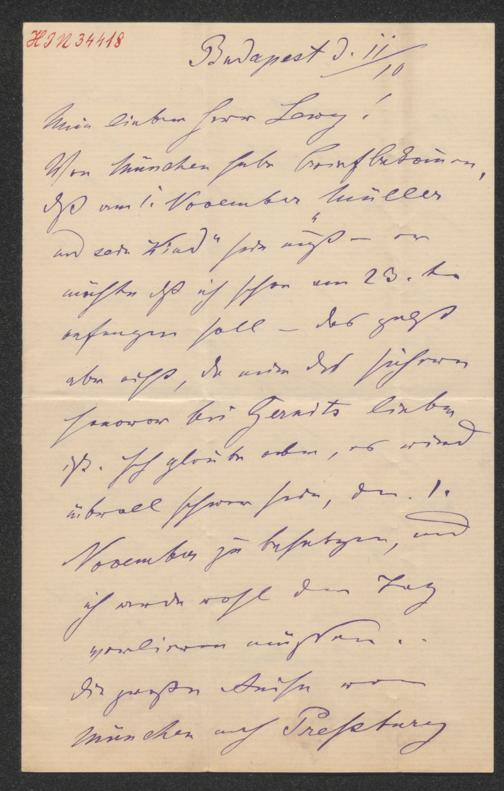 HIN 34418
Budapest d. 11/10
Mein lieber Herr Lewy!
Von München habe Brief bekommen,
daß am 1. November "Müller
und sein Kind" sein muß – er
möchte daß ich schon am 23. ten
anfangen soll – das geht
aber nicht, da mir das sichere
Honorar bei Gernits lieber
ist. Ich glaube aber, es wird
überall schwer sein, den 1.
November zu besetzen, und
ich werde wohl den Tag
verlieren müssen . .
Die große Reise von
München nach Preßburg